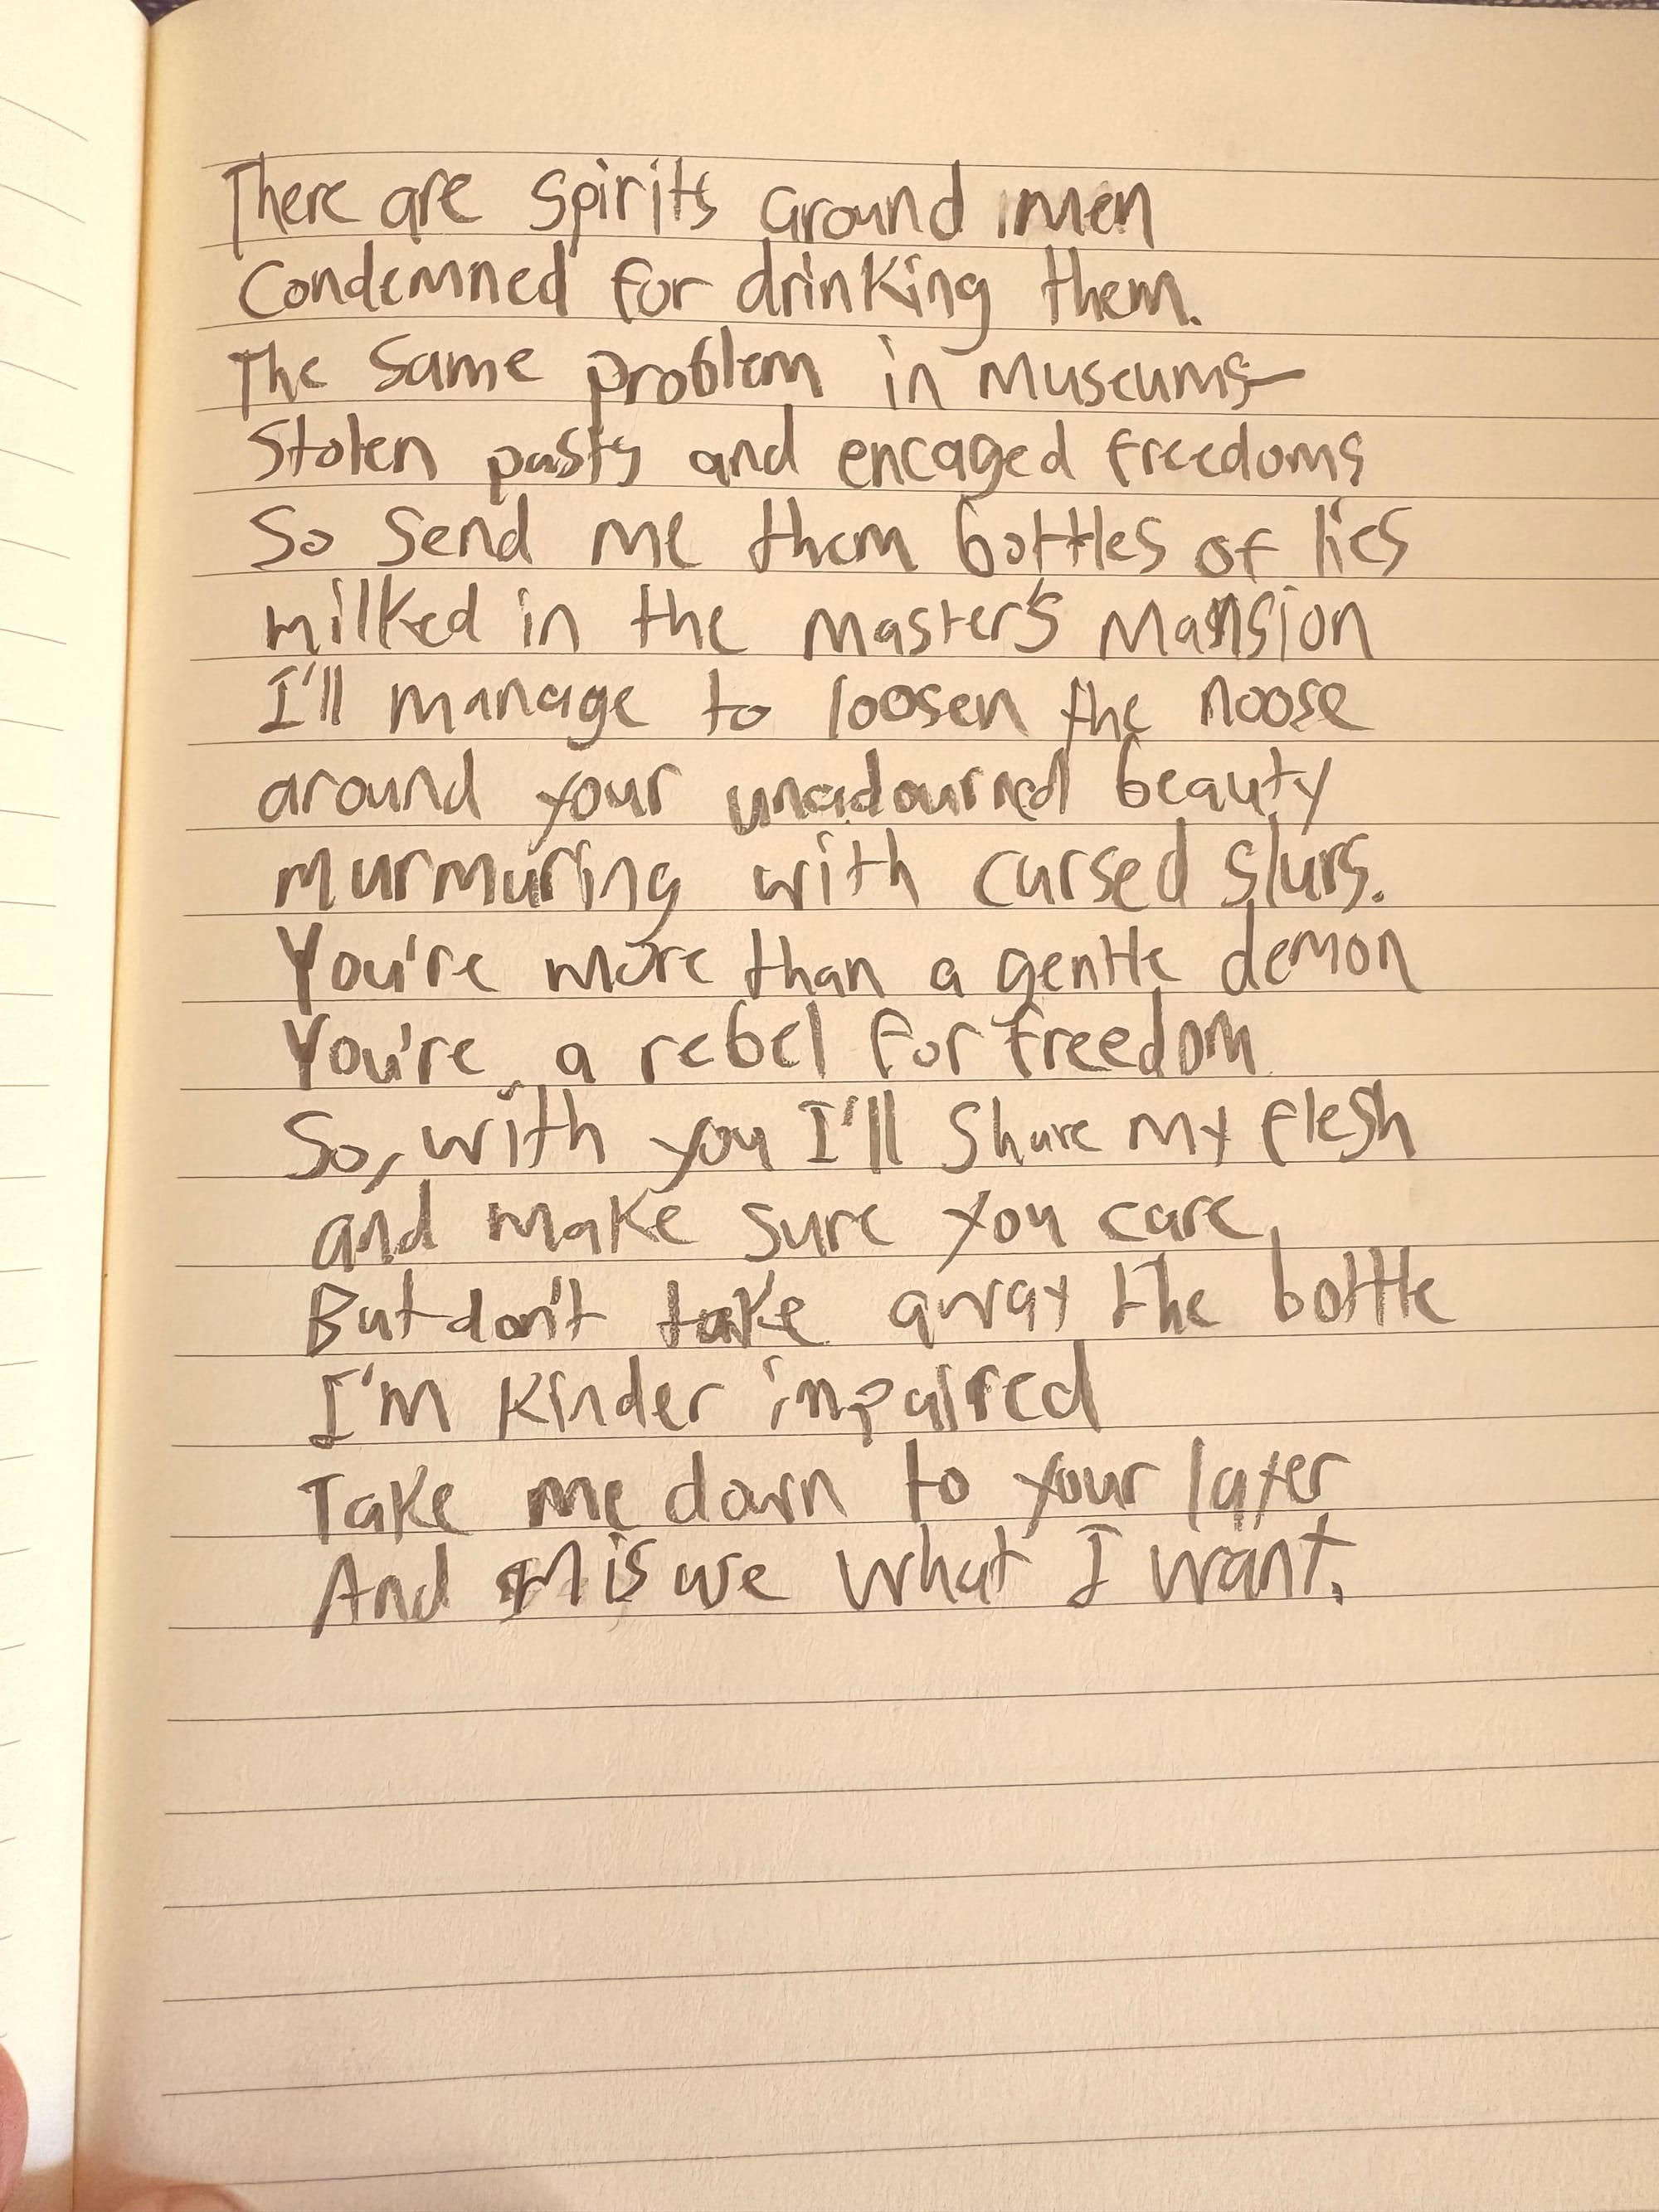 There are spirits around men
Condemned for drinking them.
The same problem in Museums—
Stolen pasts and encaged freedoms
So send me them bottles of lies
milked in the Master's Mansion
I'll manage to loosen the noose
around your unadourned beauty
murmuring with cursed slurs.
You're more than a gentle demon
You're a rebel for freedom
So, with you I'll share my flesh
and make sure you care,
But don't take away the bottle
I'm kinder impaired
Take me down to your layer
And misuse what I want.